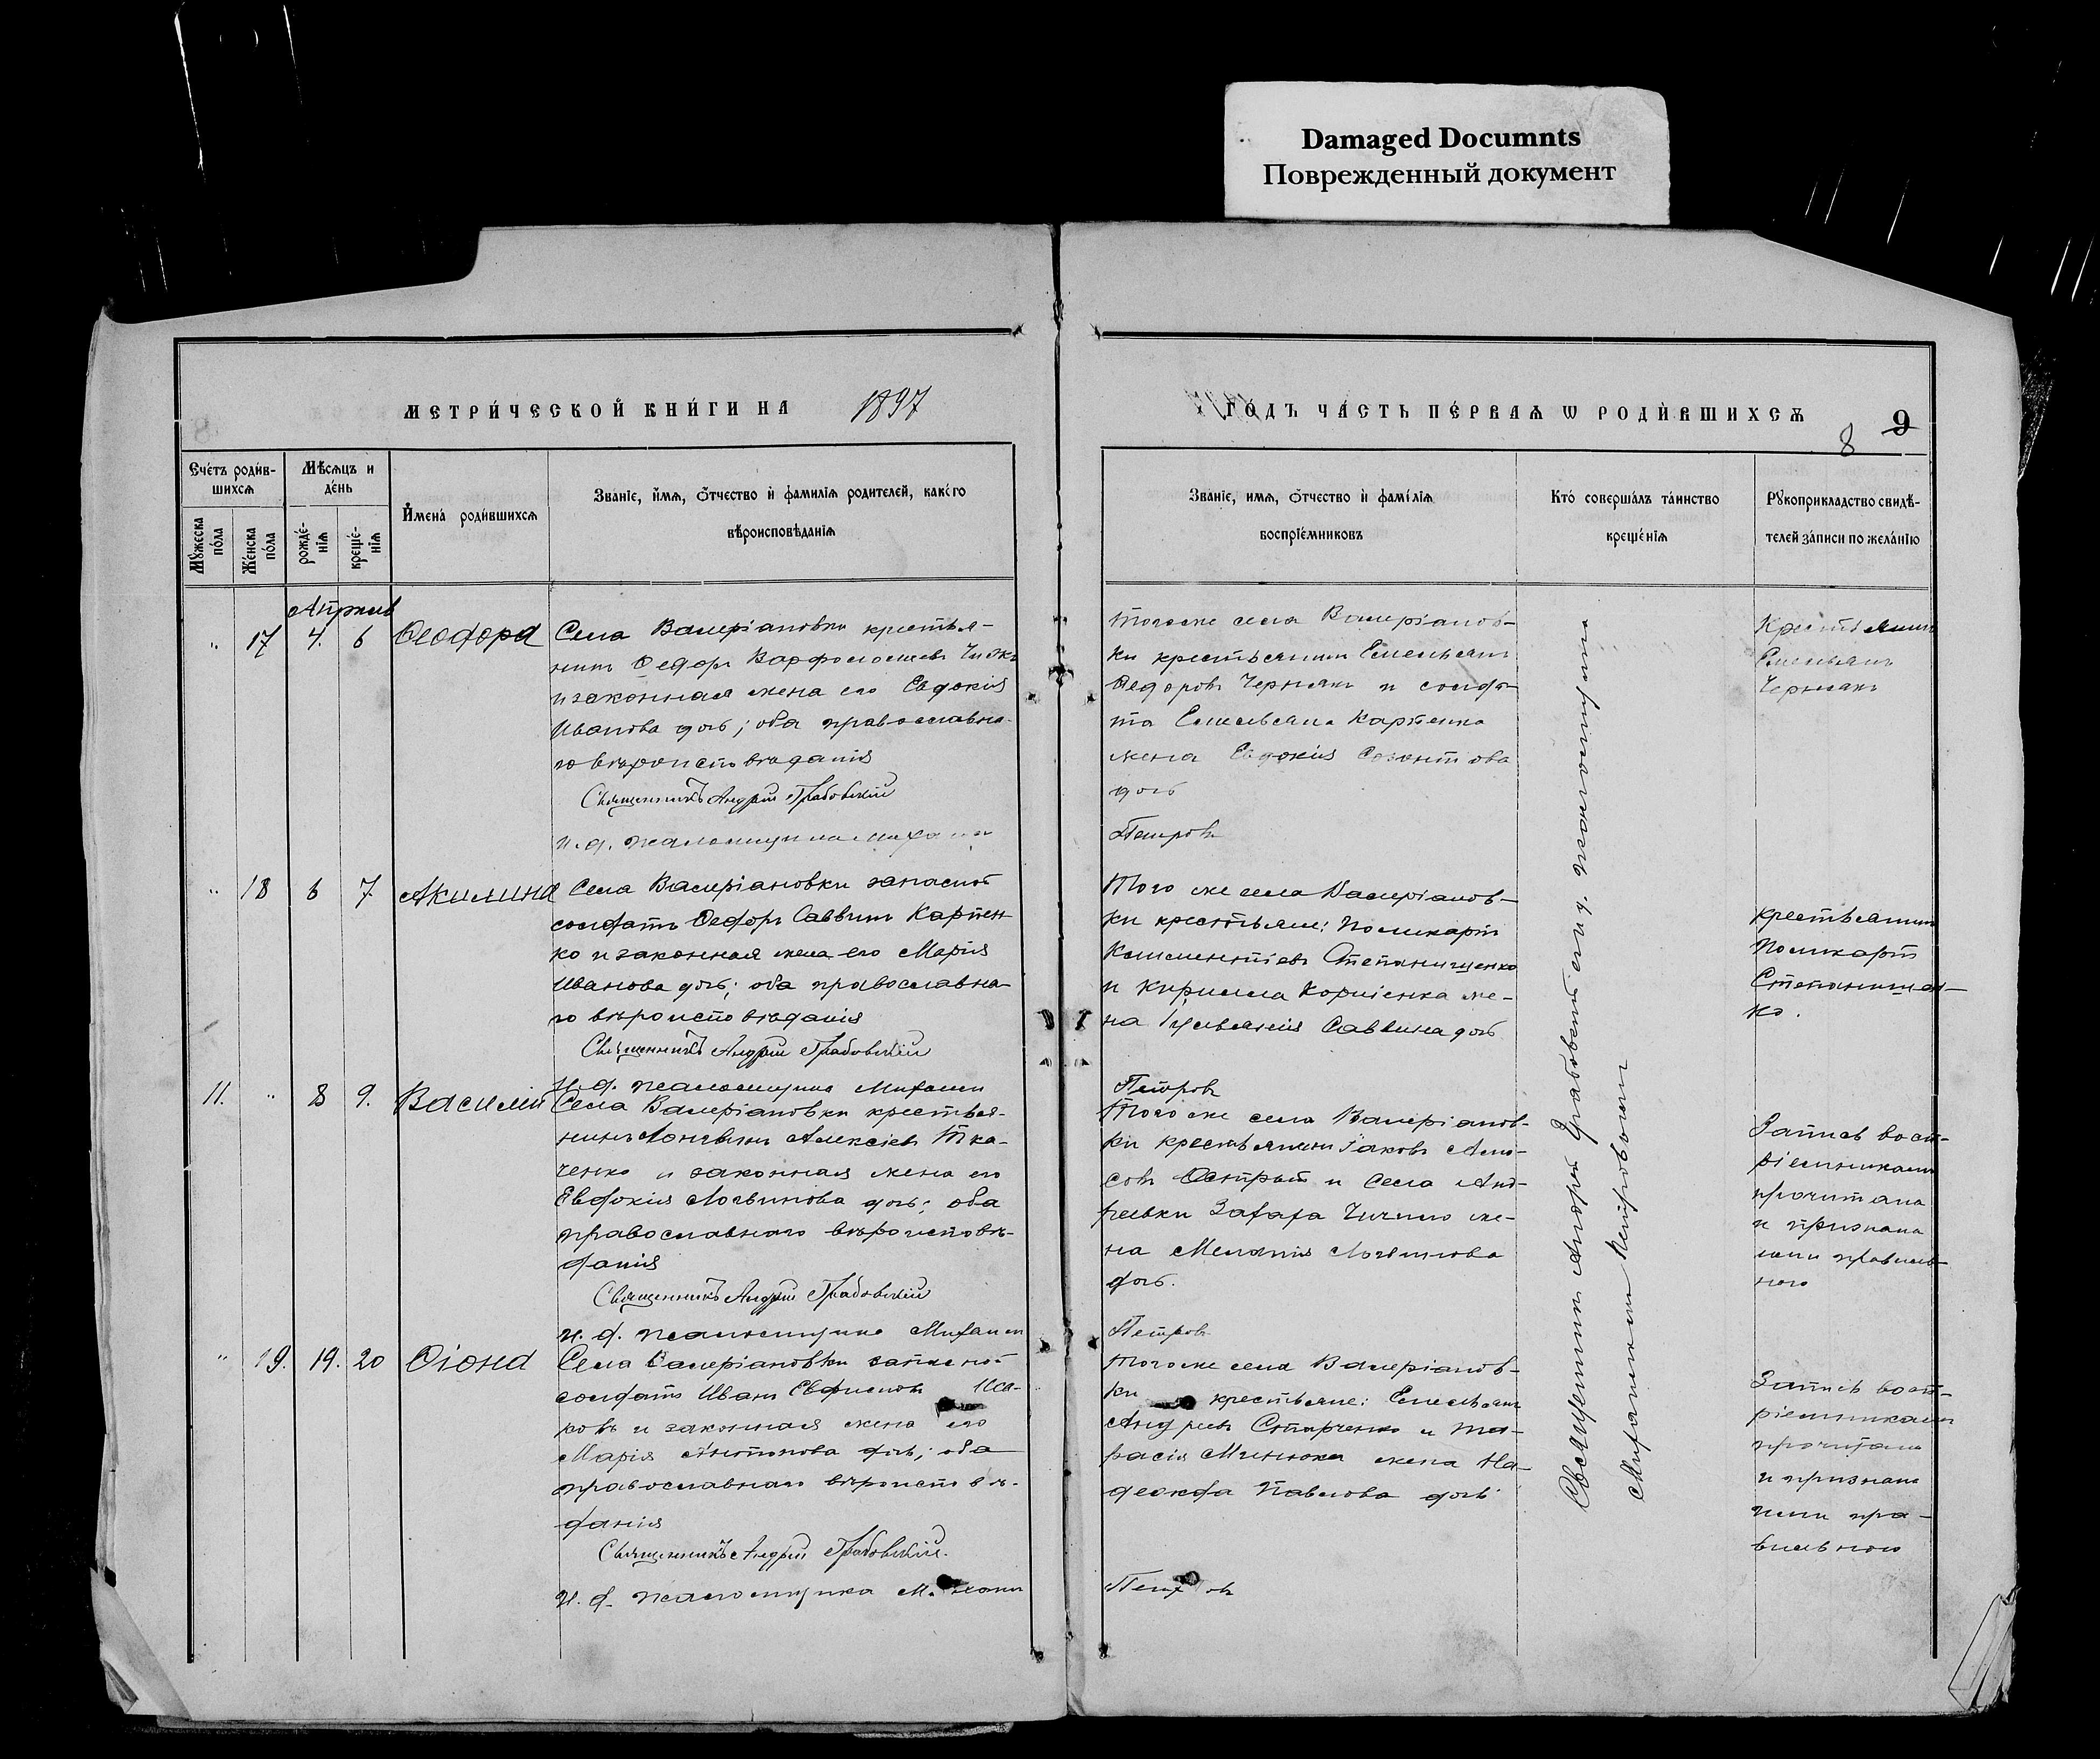 Damaged Documnts
Поврежденный документ
МЕТРИ́ЧЕСКОЙ КНИ́ГИ НА 1897
ГО́ДЪ ЧА́СТЬ ПЕ́РВАѦ Ѡ РОДИ́ВШИХСѦ
9
8
Счетъ роди́в-
шихсѧ
Мѣсѧцъ и
де́нь
Имена́ роди́вшихсѧ
Званіе, и́мѧ, о́тчество и фамиліѧ родителей, како́го
вѣроисповѣданіѧ
Мꙋжеска
по́ла
Же́нска
по́ла
рожде́-
ніѧ
креще́-
ніѧ
Званіе, имѧ, о́тчество и фамі́ліѧ
воспріе́мниковъ
Кто́ соверша́лъ та́инство
креще́ніѧ
Рꙋкоприкладство свидѣ-
телей за́писи по жела́нію
Апрель
" 17 4. 6 Ѳеодора
Села Валеріановки крестья-
нинъ Ѳедоръ Варфоломеевъ
и законная жена его Евдокія
Иванова дочь; оба православна-
го вѣроисповѣданія
Священникъ Андрей Грабовскій
и. д. псаломщика Михаил
Тогоже села Валеріанов-
ки крестьянинъ Емельянъ
Ѳедоровъ Чернякъ и солда-
та Емельяна Карпенка
жена Евдокія Созонтова
дочь
Петровъ
Крестьянинъ
Емельянъ
Чернякъ
" 18 6 7 Акилина
Села Валеріановки запасной
солдатъ Ѳедоръ Саввинъ Карпен-
ко и законная жена его Марія
Иванова дочь; оба православна-
го вѣроисповѣданія
Священникъ Андрей Грабовскій
и. д. псаломщика Михаилъ
Того же села Валеріанов-
ки крестьяне: Поликарпъ
Климентіевъ Степанищенко
и Кирилла Корніенка же-
на Іуліанія Саввина дочь
Петровъ
крестьянинъ
Поликарпъ
Степанищен-
ко.
11. " 8 9. Василій
Села Валеріановки крестья-
нинъ Логвинъ Алексіевъ Тка-
ченко и законная жена его
Евдокія Логвинова дочь; оба
православнаго вѣроисповѣ-
данія
Священникъ Андрей Грабовскій
и. д. псаломщика Михаилъ
Того же села Валеріанов-
ки крестьянинъ Іаковъ Амо-
совъ Острый и села Анд-
реевки Захара же-
на Меланія Логвинова
дочь.
Петровъ
Запись восп-
ріемникамъ
прочитана
и признана
ими правиль-
ною
" 19. 19. 20 Ѳіона
Села Валеріановки запасной
солдатъ Иванъ
и законная жена его
Марія Антонова дочь; оба
православнаго вѣроисповѣ-
данія
Священникъ Андрей Грабовскій.
и. д. псаломщика Михаилъ
Тогоже села Валеріанов-
ки крестьяне: Емельянъ
Андреевъ Старченко и Та-
расія жена На-
дежда Павлова дочь
Петровъ
Запись восп-
ріемникамъ
прочитана
и признана
ими пра-
вильною
Священникъ Андрей Грабовскій и и. д. псаломщика
Михаилъ Петровъ